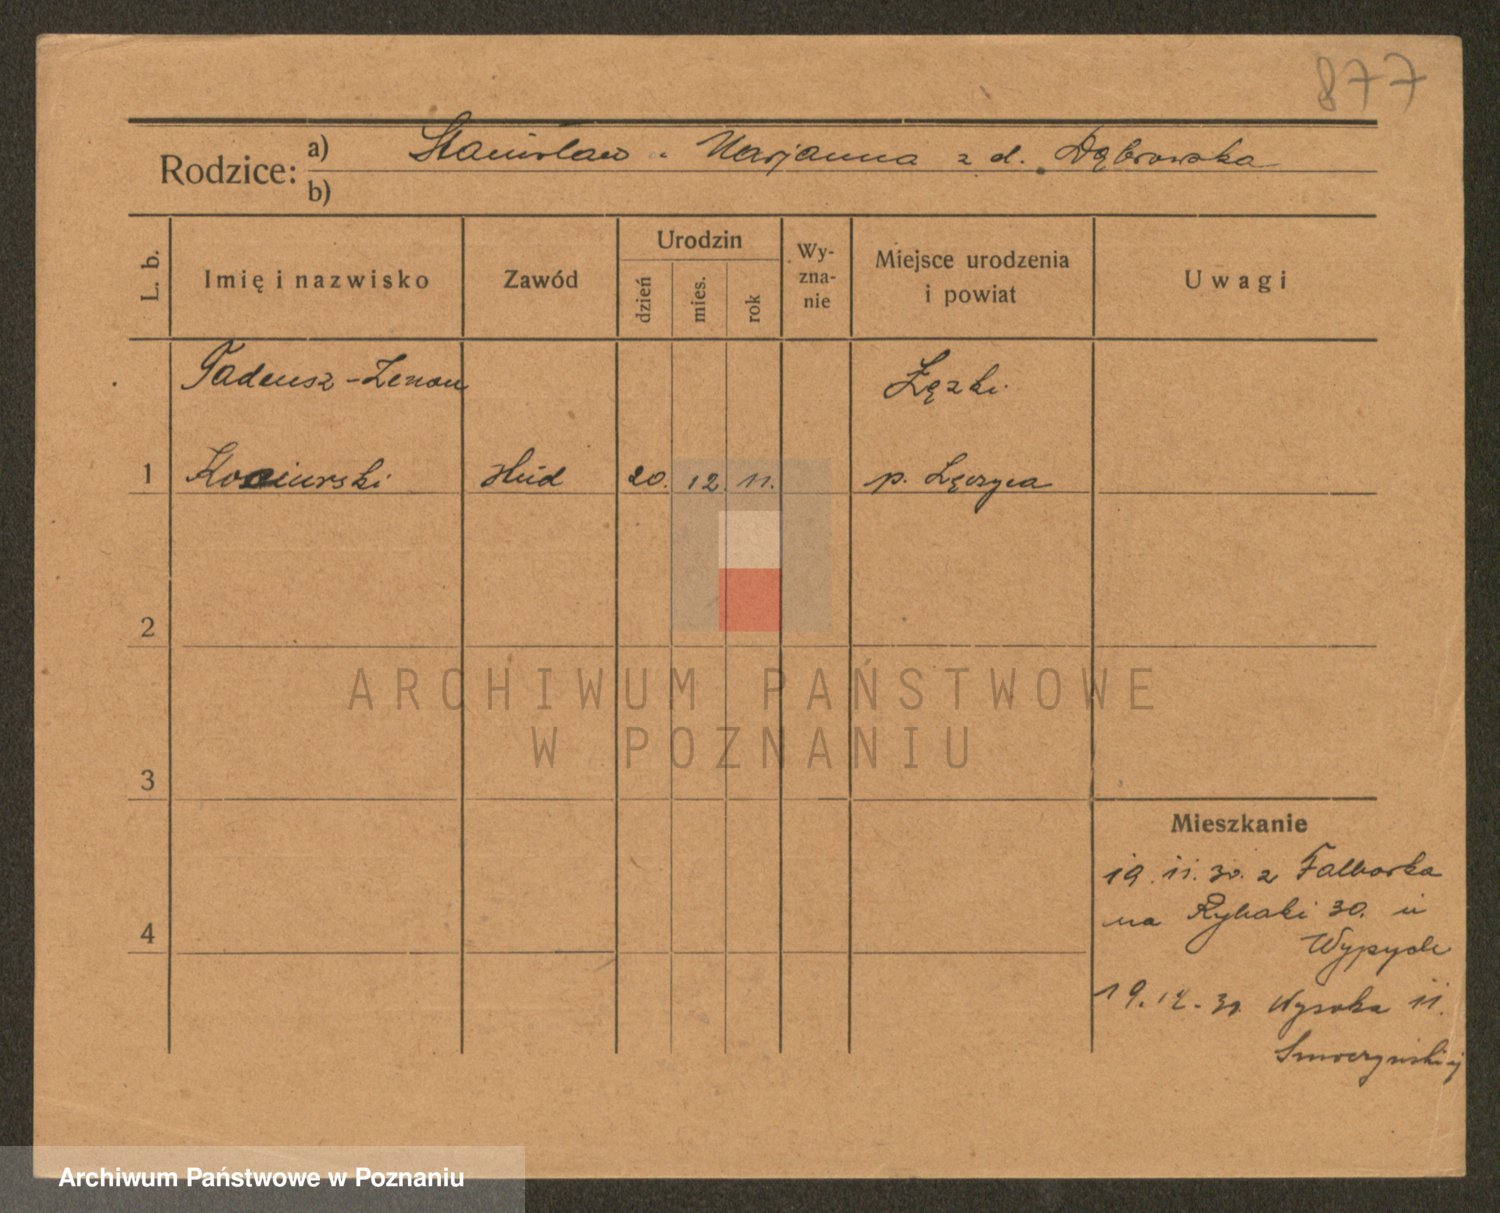 877
Rodzice: a) Stanisław i Marjanna z d. Dąbrowska
b)
L. b. Imię i nazwisko Zawód Urodzin dzień mies. rok Wyznanie Miejsce urodzenia i powiat Uwagi
Tadeusz-Zenon Łęzki
1 stud 20. 12. 11. p. Łęczyca
2
3
4
Mieszkanie
19. 11. 30. z
na Rybaki 30. u
Wypych
19. 12. 30. Wysoka 11.
Smoczyńskiej
ARCHIWUM PAŃSTWOWE
W POZNANIU
Archiwum Państwowe w Poznaniu